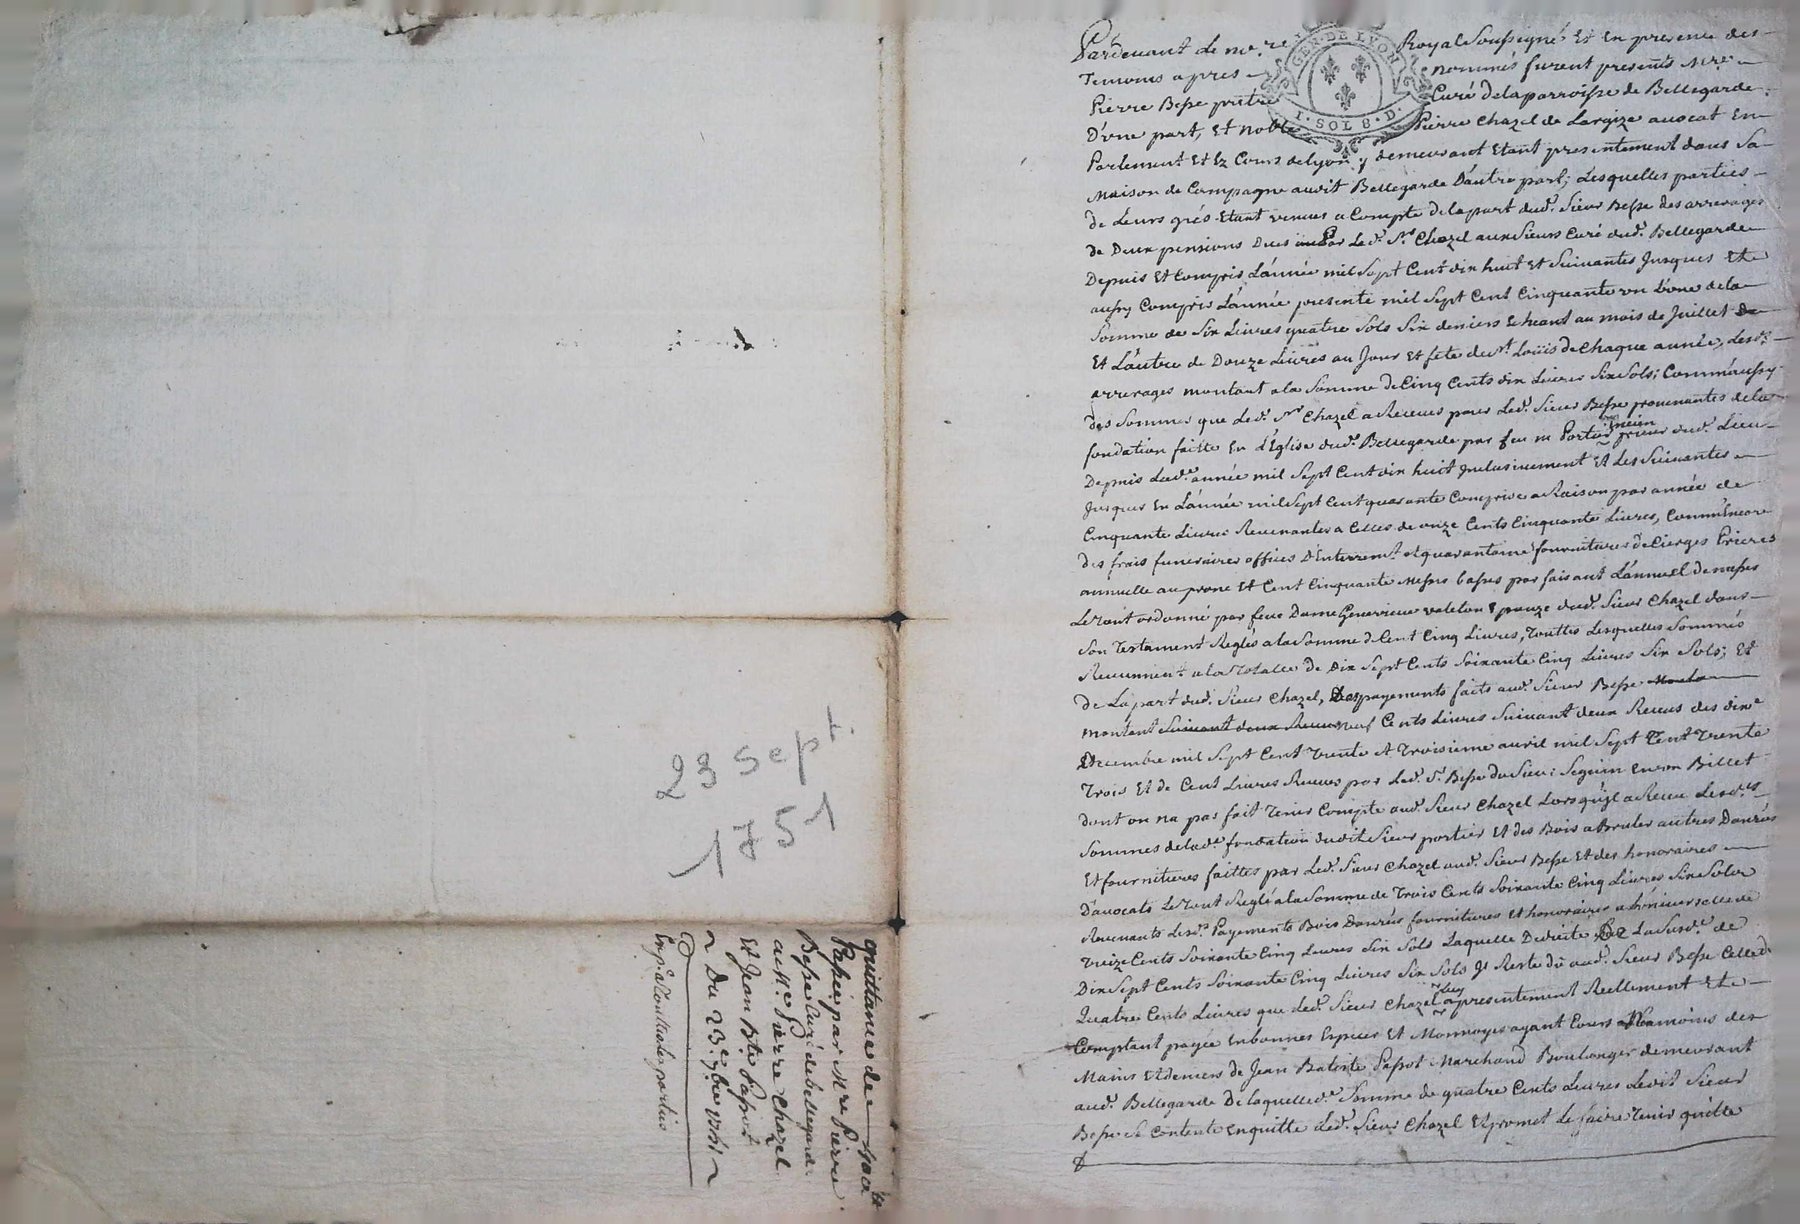 GEN·DE LYON
I·SOL 8·D·
Pardevant le no.re Royal Soussigné Et En presence des
Temoins apres nommés furent presents Mre
Pierre Besse prêtre Curé de la parroisse de Bellegarde
D'une part, Et Noble Pierre Chazel de Largize avocat En
Parlement Et Ez Cours de Lyon y demeurant Etant presentement dans Sa
Maison de Campagne audit Bellegarde D'autre part; Lesquelles parties
de Leurs grés Etant venues a Compte de la part dud. Sieur Besse des arrerages
de Deux pensions Dues par Led. Sr Chazel aux Sieurs Curé dud. Bellegarde
Depuis Et Compris L'année mil Sept Cent dix huit Et Suivantes Jusques Et
aussy Compris L'année presente mil Sept Cent Cinquante un L'une de la
Somme de Six Livres quatre Sols Six deniers Echeant au mois de Juillet
Et L'autre de Douze Livres au Jour Et fete de st Loüis de Chaque année, Lesd.
arrerages montant a la Somme de Cinq Cents dix Livres Six Sols; Comm'aussy
des Sommes que Led. Sr Chazel a Receues pour Led. Sieur Besse provenantes de la
fondation faitte En L'Eglise dud. Bellegarde par feu m Portier prieur dud. Lieu
Depuis Lad.e année mil Sept Cent dix huit Inclusivement Et Les Suivantes
Jusques En L'année mil Sept Cent quarante Comprise a Raison par année de
Cinquante Livres Revenantes a Celles de onze Cents Cinquante Livres, Comm'Encore
des frais funeraires offices D'Enterremt. et quarantaine fournitures de Cierges Prieres
annuelle au prone Et Cent Cinquante Messes basses par faisant L'annuel de messes
Le Tout ordonné par feue Dame Genevieve valeton Epouze dud. Sieur Chazel dans
Son Testament Reglés a la Somme de Cent Cinq Livres, Touttes Lesquelles Sommes
Reviennent a la Totalle de Dix Sept Cents Soixante Cinq Livres Six Sols; Et
de La part dud. Sieur Chazel, Des payements faits aud. Sieur Besse
montant Suivant deux Receus neuf Cents Livres Suivant deux Receus des dixe
Decembre mil Sept Cent Trente Et Troisieme avril mil Sept Cent Trente
Trois Et de Cent Livres Receues par Led. Sr. Besse du Sieur Seguin En un Billet
dont on n'a pas fait Tenir Compte aud. Sieur Chazel Lorsqu'jl a Receu Lesd.es
Sommes de lad.e fondation dudit Sieur portier Et des Bois a Bruler autres Danrées
Et fournitures faittes par Led. Sieur Chazel aud. Sieur Besse Et des honoraires
D'avocats Le Tout Reglé a la Somme de Trois Cents Soixante Cinq Livres Six Sols
Revenants Lesd.s Payements Bois Danrées fournitures Et honoraires a celle de
Treize Cents Soixante Cinq Livres Six Sols Laquelle Deduite De La Susd.e de
Dix Sept Cents Soixante Cinq Livres Six Sols Jl Reste dû aud. Sieur Besse Celle de
Quatre Cents Livres que Led. Sieur Chazel luy a presentement Reellement Et
Comptant payée En bonnes Especes Et Monnoyes ayant Cours des
Mains Et deniers de Jean Batiste Papot Marchand Boulanger demeurant
aud. Bellegarde De laquelle d.e Somme de quatre Cents Livres Ledit Sieur
Besse Contente En quitte Led. Sieur Chazel Et promet Le faire Tenir quitte
23 sept.
1751
quittance de 400 lt
Papié par Mre Pierre
Besse Curé de bellegarde
a Me. Pierre Chazel
Et Jean Bte Papot
Du 23e. 7bre 1751